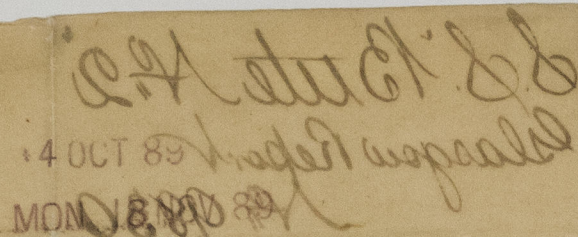 S.S. "Bute No. 2"
Glasgow Report
4 OCT 89
No.
MON. 18 NOV 89